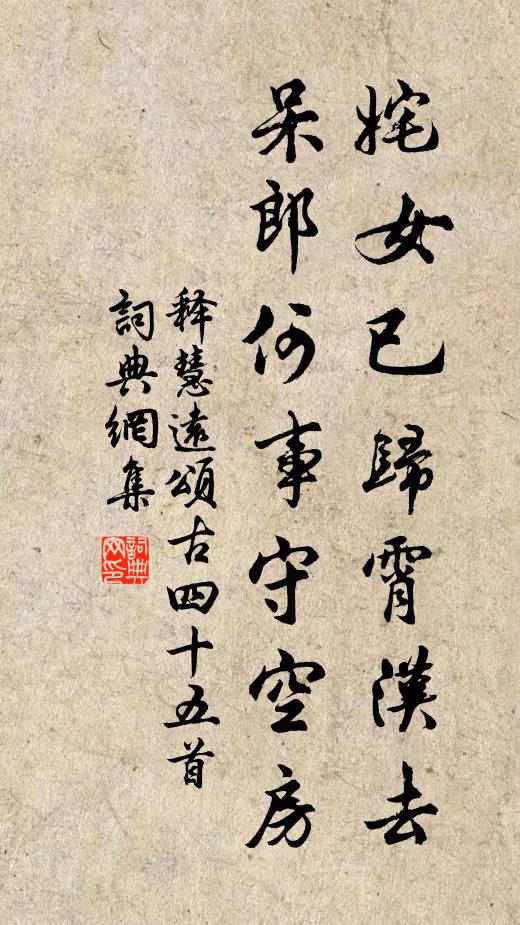 姹女已歸霄漢去
呆郎何事守空房
释慧遠頌古四十五首
詞典網集
詞典网印